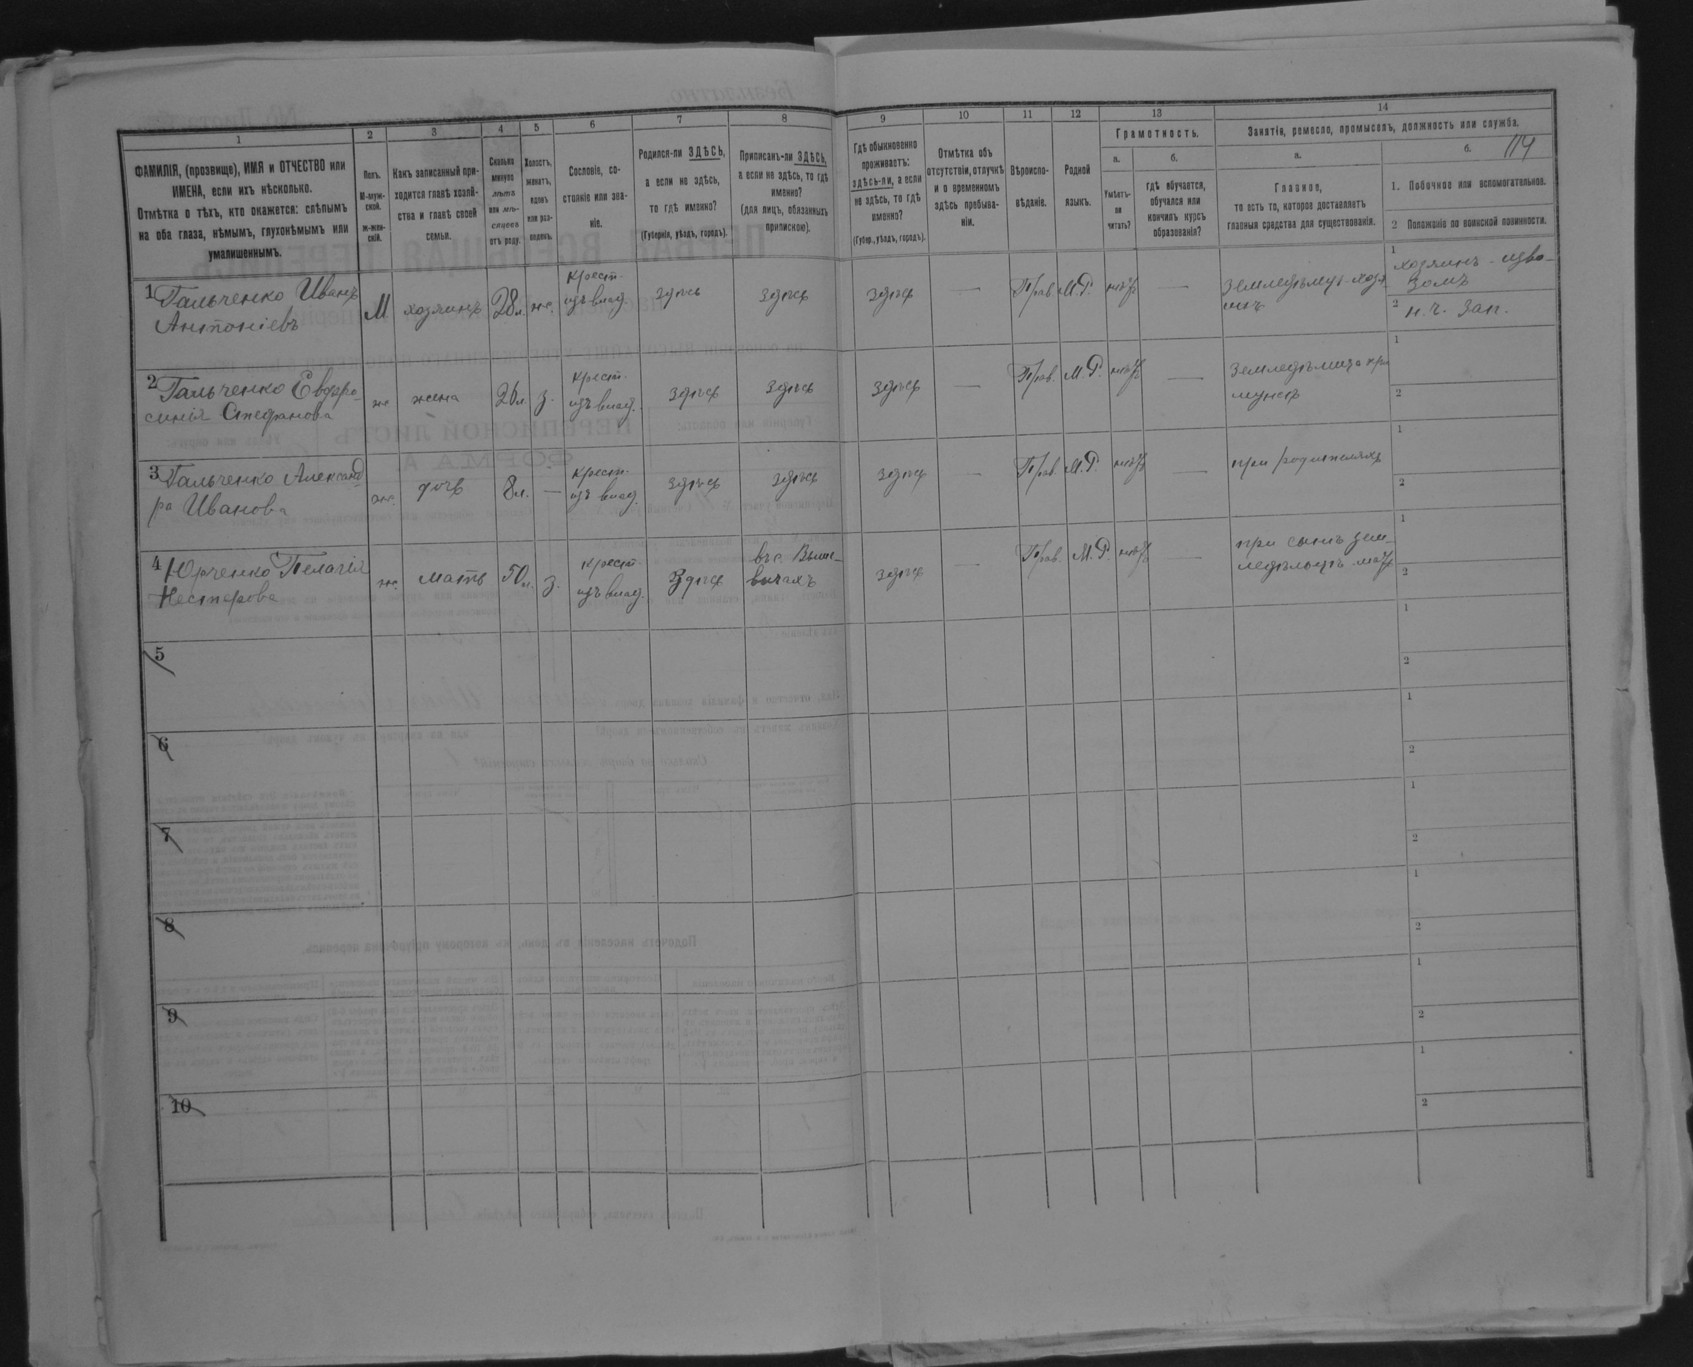 114
1 2 3 4 5 6 7 8 9 10 11 12 13 14
ФАМИЛІЯ, (прозвище), ИМЯ и ОТЧЕСТВО или
ИМЕНА, если ихъ нѣсколько.
Отмѣтка о тѣхъ, кто окажется: слѣпымъ
на оба глаза, нѣмымъ, глухонѣмымъ или
умалишеннымъ.
Полъ.
М-муж-
ской.
ж-жен-
скій.
Какъ записанный при-
ходится главѣ хозяй-
ства и главѣ своей
семьи.
Сколько
минуло
лѣтъ
или мѣ-
сяцевъ
отъ роду.
Холостъ,
женатъ,
вдовъ
или раз-
веденъ.
Сословіе, со-
стояніе или зва-
ніе.
Родился-ли ЗДѢСЬ,
а если не здѣсь,
то гдѣ именно?
(Губернія, уѣздъ, городъ).
Приписанъ-ли ЗДѢСЬ,
а если не здѣсь, то гдѣ
именно?
(для лицъ, обязанныхъ
припискою).
Гдѣ обыкновенно
проживаетъ:
здѣсь-ли, а если
не здѣсь, то гдѣ
именно?
(Губер., уѣздъ, городъ).
Отмѣтка объ
отсутствіи, отлучкѣ
и о временномъ
здѣсь пребыва-
ніи.
Вѣроиспо-
вѣданіе.
Родной
языкъ.
Грамотность.
а.
Умѣетъ-
ли
читать?
б.
гдѣ обучается,
обучался или
кончилъ курсъ
образованія?
Занятія, ремесло, промыселъ, должность или служба.
а.
Главное,
то есть то, которое доставляетъ
главныя средства для существованія.
б.
1. Побочное или вспомогательное.
2 Положеніе по воинской повинности.
1 Гальченко Иванъ
Антоніевъ
М хозяинъ 28 л. же. крест.
изъ влад. здѣсь здѣсь здѣсь — Прав. М.Р. нѣтъ —
1 хозяинъ - изво-
зомъ
2 н. ч. зап.
2 Гальченко Евфро-
синія Стефанова
же жена 26 л. з. крест.
изъ влад. здѣсь здѣсь здѣсь — Прав. М.Р. нѣтъ —
1
2
3 Гальченко Александ
ра Иванова
же. дочь 8 л. — крест.
изъ влад. здѣсь здѣсь здѣсь — Прав. М.Р. нѣтъ — при родителяхъ
1
2
4 Юрченко Пелагія
Нестерова
же. мать 50 л. з. крест.
изъ влад. здѣсь здѣсь — Прав. М.Р нѣтъ —
при сынѣ зем-
1
2
5 1
2
6 1
2
7 1
2
8 1
2
9 1
2
10 1
2